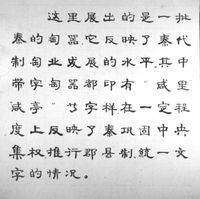 这里展出的是一批
秦的匋器它反映了秦代
制匋业发展的水平。其中
带字匋器都印有"咸
咸亭"等字样在一定程
度上反映了秦巩固中央
集权推行郡县制統一文
字的情况。